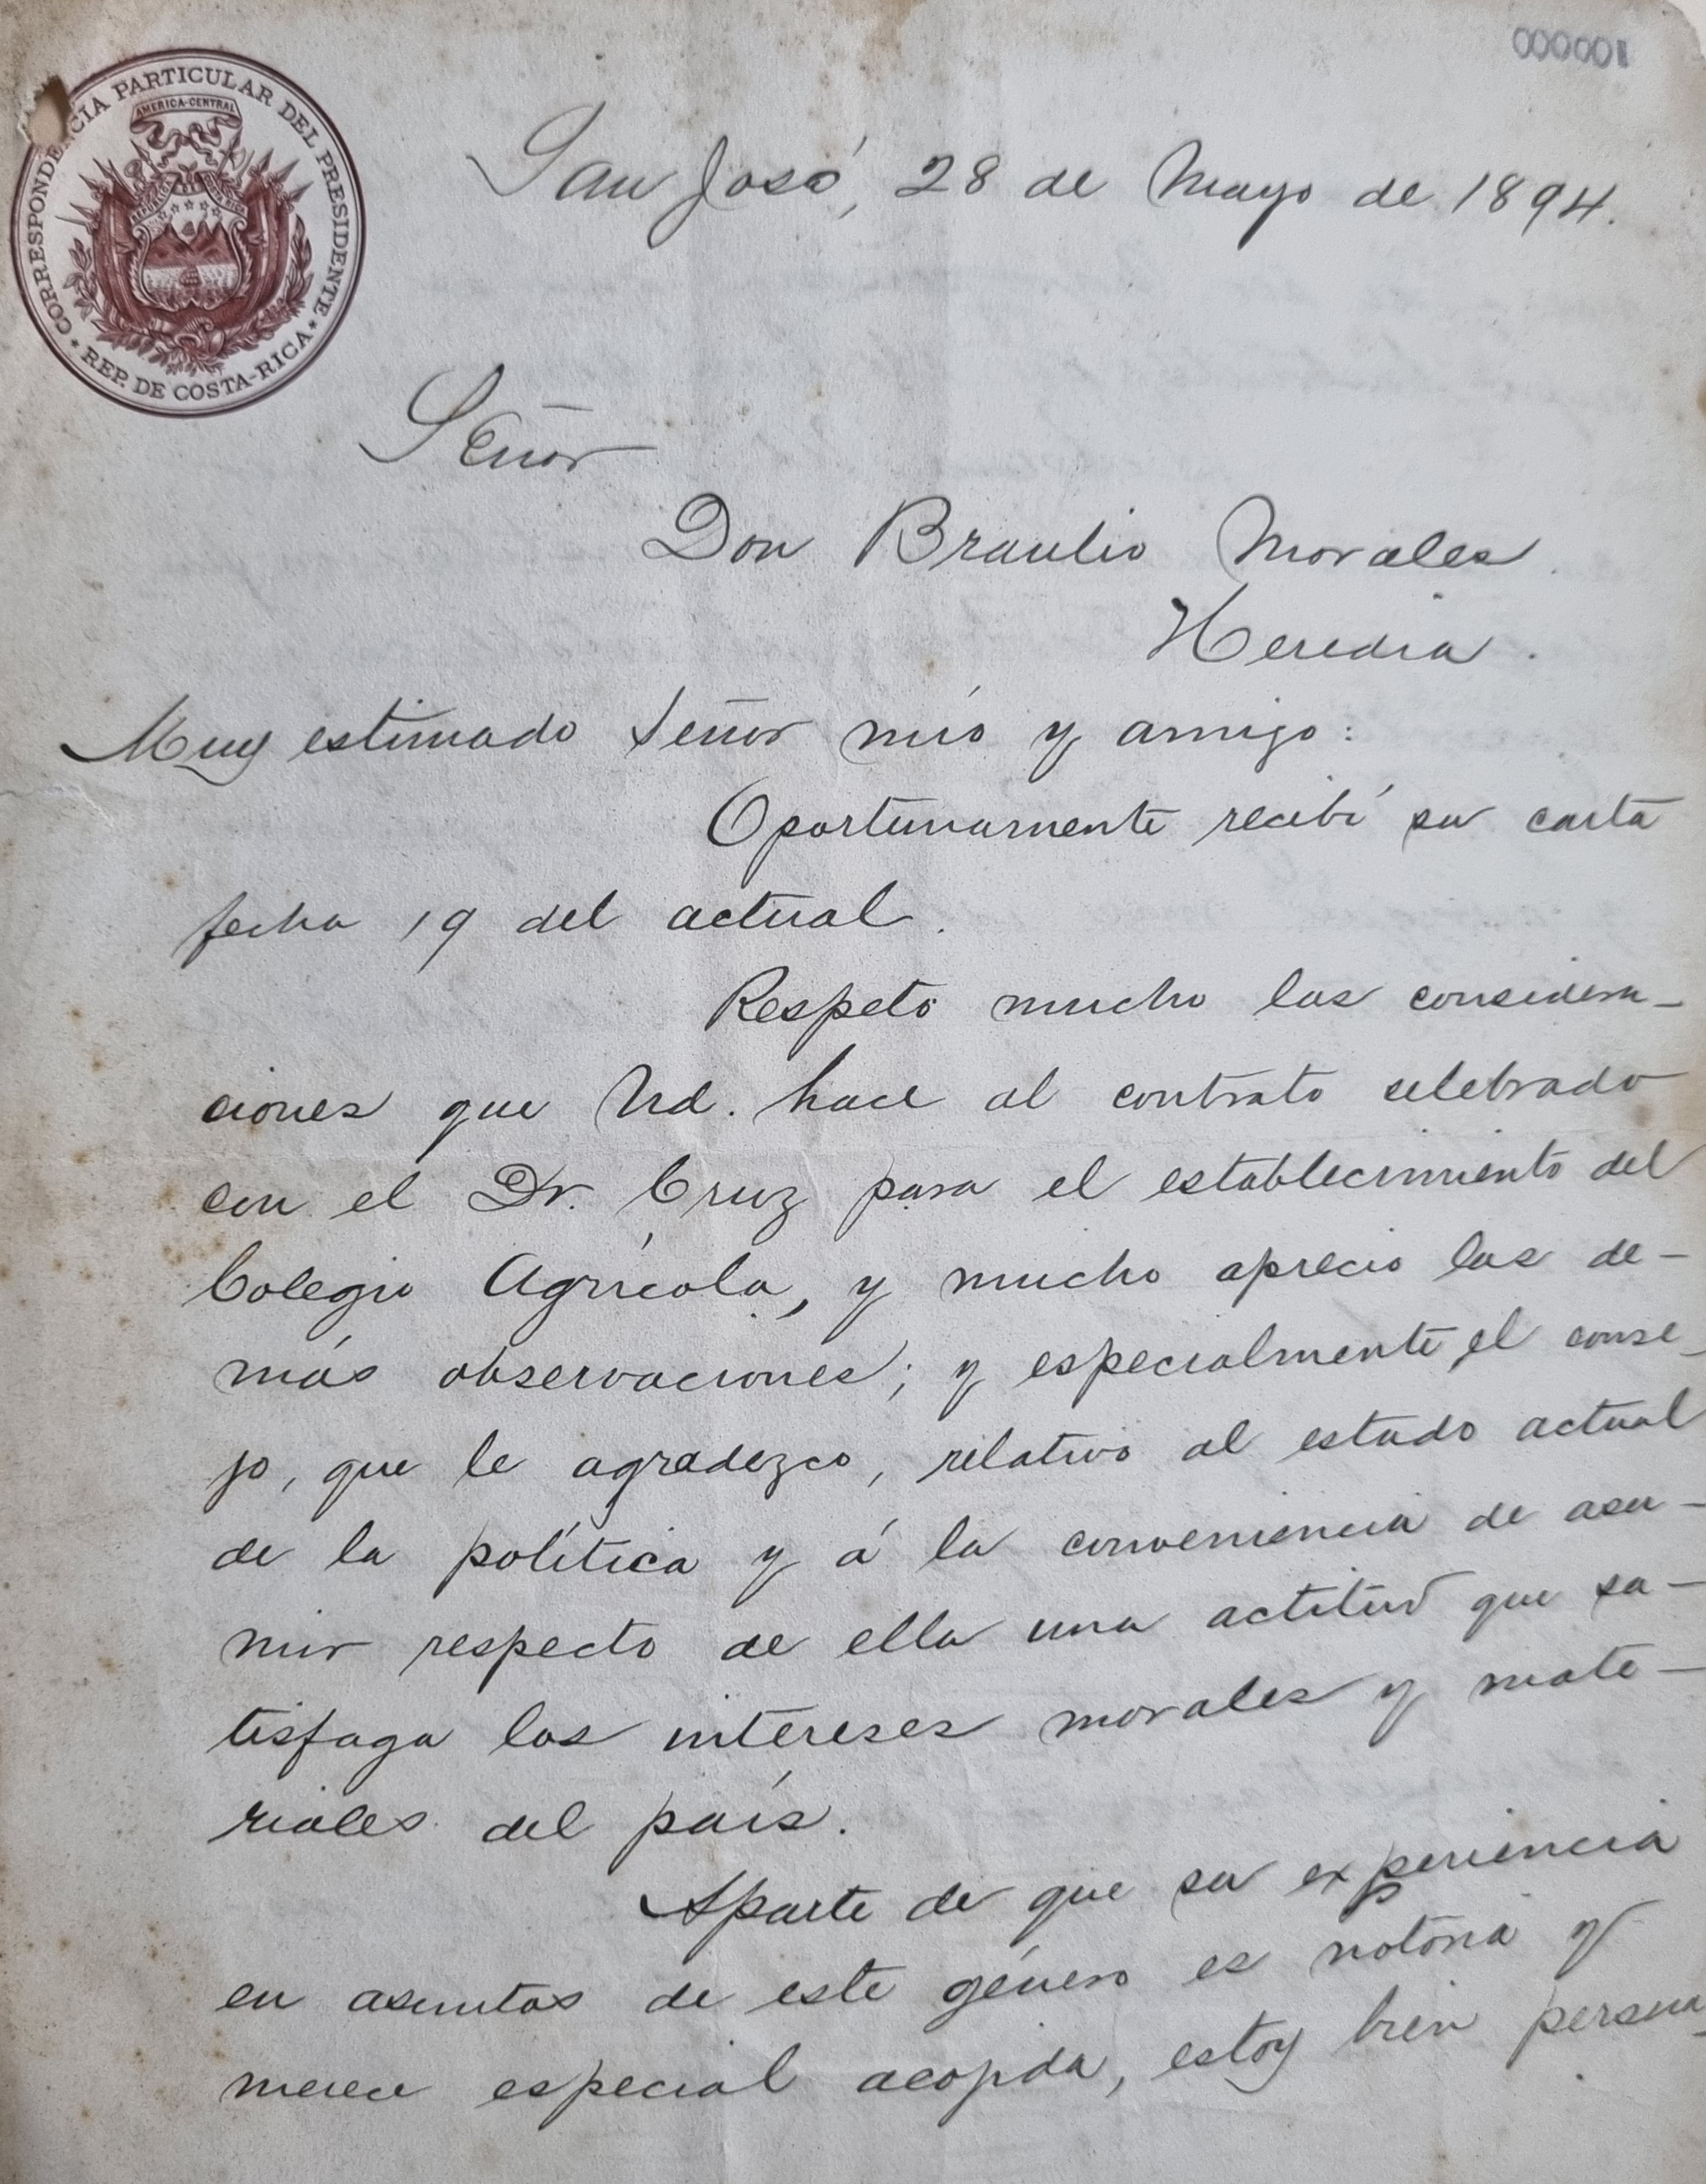 000001
CORRESPONDENCIA PARTICULAR DEL PRESIDENTE
AMERICA-CENTRAL
REP. DE COSTA-RICA
San José, 28 de Mayo de 1894.
Señor
Don Braulio Morales.
Heredia.
Muy estimado Señor mío y amigo:
Oportunamente recibí su carta
fecha 19 del actual.
Respeto mucho las considera-
ciones que Ud. hace al contrato celebrado
con el Dr. Cruz para el establecimiento del
Colegio Agrícola, y mucho aprecio las de-
más observaciones; y especialmente el conse-
jo, que le agradezco, relativo al estado actual
de la política y á la conveniencia de asu-
mir respecto de ella una actitud que sa-
tisfaga los intereses morales y mate-
riales del país.
Aparte de que su experiencia
en asuntos de este género es notoria y
merece especial acogida, estoy bien persua-